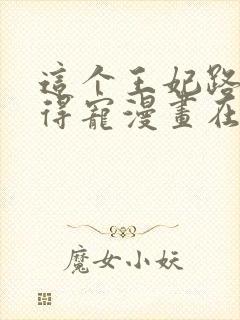 這个王妃路
得寵漫畫在
魔女小妖